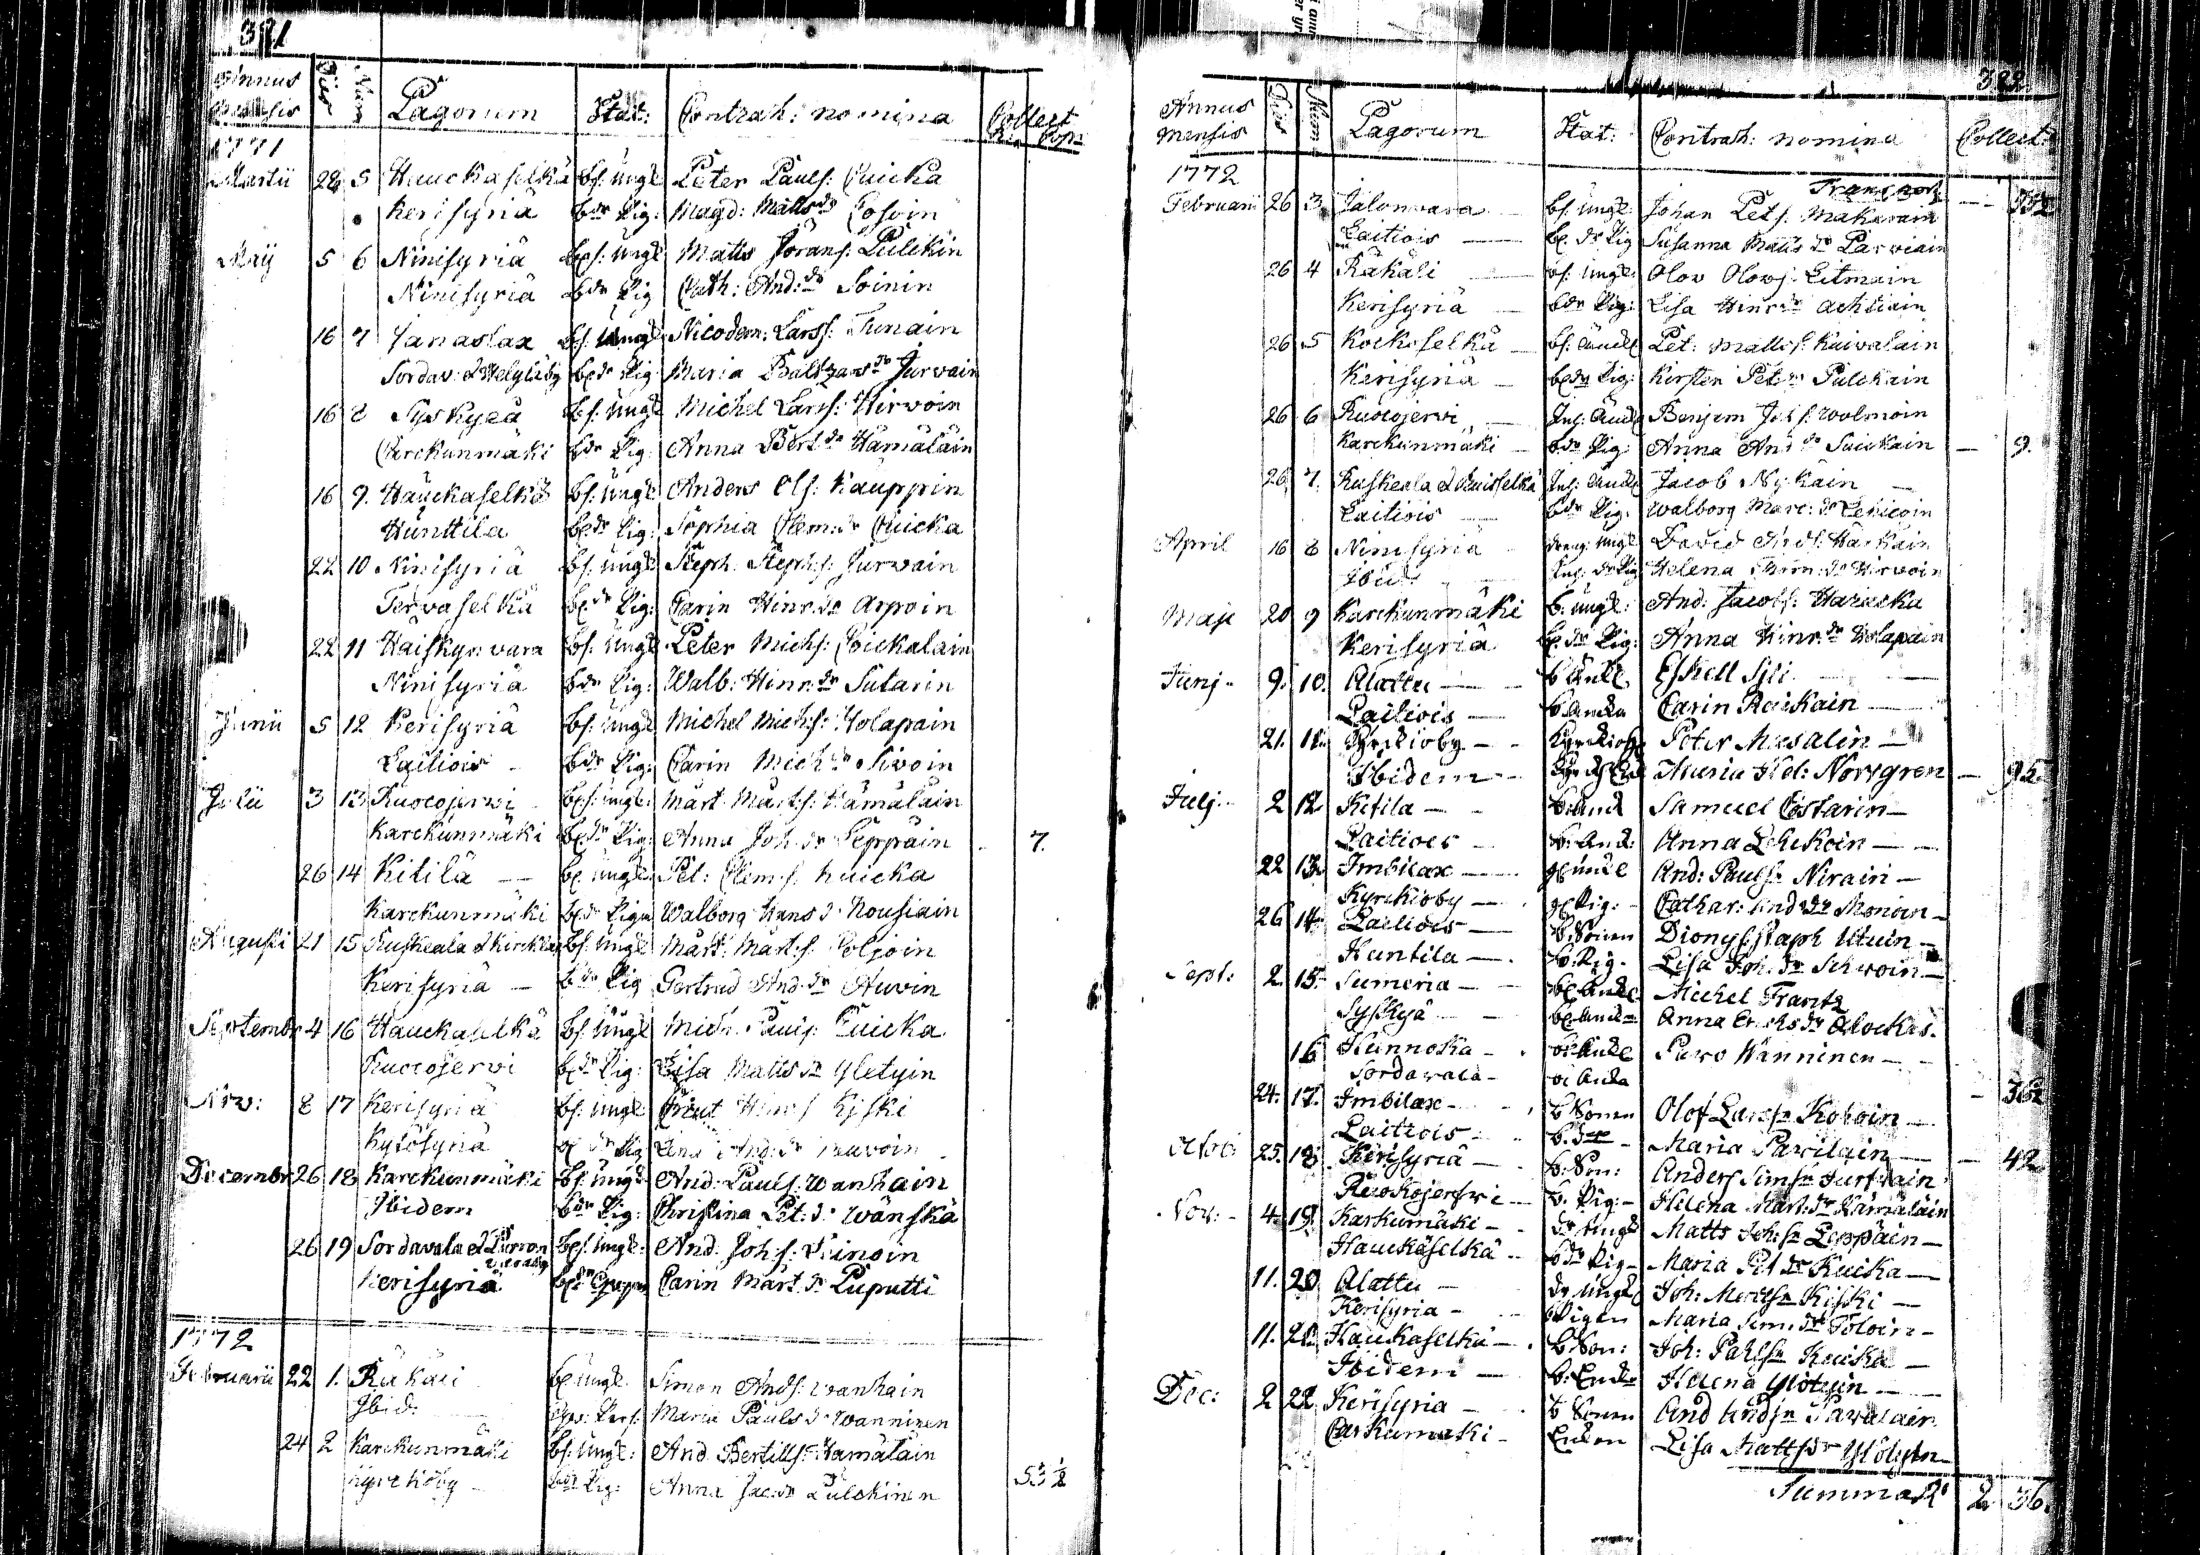 321
Annus Mensis Dies Num Pagorum Stat: Contrah: nomina Collect
R. Cop:
1771
Martii 28 5 Hauckaselkä bs: ungk Peter Pauls: Cuicka
Kerisyriä bdr Pig: Magd: Mattsdr Cosoin
Maij 5 6 Ninisyriä bs: ungk Matts Jörans: Pulckin
Ninisyriä bdr Pig Cath: And: dr Soinin
16 7 Janaslax bs: ungk Nicodem: Larss: Tunain
Sordav: & Helyläby bdr Pig Maria Baltzarsdr Jurvain
16 8 Syskyeä bs: ungk Michel Larss: Hirvoin
Carckunmäki bdr Pig: Anna Bert dr Hämäläin
16 9. Hauckaselkä bs: ungk Anders Ols: Kauppin
Hunttila bdr Pig: Sophia Clem: dr Cuicka
22 10 Ninisyriä bs: ungk Steph: Steph:s: Jurvain
Tervaselkä bdr Pig: Carin Hinr: dr Arpoin
22 11 Häiskynvara bs: ungk Peter Michs: Coickalain
Ninisyriä bdr Pig: Walb: Hinr: dr Sutarin
Junii 5 12 Kerisyriä bs: ungk Michel Mich:s: Holapain
Laitiois bdr Pig: Carin Mich dr Sivoin
Julii 3 13 Ruocojerwi bs: ungk: Mårt: Mårt:s: Hämäläin
Karckunmäki bdr Pig: Anna Joh: dr Leppäin 7.
26 14 Kitilä — bs ungk: Pet: Clem:s: Kuicka
Karckunmäki bdr Piga Walborg Hans dr Nousiain
Augusti 21 15 Ruskeala & Kirckla bs: ungk Mårt: Mårt:s: Poljoin
Kerisyriä — bdr Pig Gertrud And: dr Auvin
Septembr 4 16 Hauckaselkä bs: ungk Mich: Pauls: Cuicka
Ruocojervi bdr Pig: Lisa Matts dr Yletyin
Nov: 8 17 Kerisyriä bs: ungk Knut Hinr:s Kiski
Kytösyriä dr Pig And: dr
Decembr 26 18 Karckunmäki bs: ungk And: Pauls: Wanhain
Ibidem bdr Pig: Christina Pet: dr Wänskä
26 19 Sordavala & bs: ungk: And: Joh:s:
Kerisyriä Carin Mårt: dr Puputti
1772
Februarii 22 1. Räkäli bs: ungk: Simon Ands: Wanhain
Ibid: Maria Pauls dr Wänninen
24 2 Karckunmäki bs: ungk: And: Bertills: Hämäläin
Kyrckiöby — bdr Pig: Anna Jac: dr Pulckinen 53 1/2
322.
Annus Mensis Dies Num: Pagorum Stat: Contrah: nomina Collect:
1772 Transport
Februarii 26 3 Jalonvara — bs: ungk: Johan Pets: Makarain — 53 1/2
Laitiois — bs. dr Pig Susanna Matts dr Parviain
26 4 Räkäli — bs: ungk: Olov Olovs: Eitmain
Kerisyriä — bdr Pig: Lisa Hinr: dr Achtiain
26 5 Kockoselkä — bs: Änckl Pet: Matts:s: Kaivalain
Kerisyriä — bdr Pig: Kirsten Pet: dr Pulckain
26 6 Ruocojervi — Inh: Änckl Benjam Joh:s: Wolmoin
Karckunmäki — bdr Pig: Anna And dr Suickain — 9.
26 7. Ruskeala & Ruisselkä Inh: Änckl Jacob Nykäin —
Laitiois — bdr Pig: Walborg Marc: dr Lehicoin
April 16 8 Ninisyriä — dreng: ungk David Ands: Härkäin
Ibid: — Inh: dr Pig Helena Sim: dr Hirvoin
Maji 20 9 Karckunmäki b: ungk: And: Jacobs: Haracka
Kerisyriä b: dr Pig: Anna Hinr: dr Holapain
Junj — 9. 10. Alattu — b Änkl. Eskell Sjli —
Laitiois — b: Ancka Carin Raikain —
21. 11. Kyrckioby — Peter Mesalin —
Ibidem — Maria Hel: Norsgren — 95.
Julj — 2 12 Kitila — b: Anck Samuel Costarin —
Laitioes — b: Anck: Anna Lehikoin —
22 13. Imbilax — ungk And: Paulsn Nirain —
Kyrckioby — Pig: — Cathar: And dr Moniain —
26 14 Laitiois — b: Sonen Dionys: Staph Utuin —
Huntila — b: Pig. Lisa Joh: dr Schwoin —
Sept: 2. 15. Sumeria — b: Ankl Michel Frantz
Syskyä — b: Anck Anna Erichsdr Alockas.
16 Hunnoka — b: Ankl Pavo Wänninen —
Sordavala — b: Anka — 36 1/2
24. 17. Imbilax — b Sonen Olof Larssn Kokoin —
Laitiois — b: dr — Maria Pavilain —
Octob: 25. 18. Kerisyriä — b: Son: Anders Simsn Jurvain — 42
Ruokojerwi — b. Pig: — Helena Mårt: dr Hämäläin
Nov: — 4. 19. Karkumäki — dr Ungk Matts Joh:sn Leppäin —
Hauckaselkä — bdr Pig — Maria Pet dr Kuicka —
11. 20. Alattu — dr Ungk Joh: Mertsn Kiski —
Kerisyria — Pigan Maria Sim: dr Toloin —
11. 21. Hauckaselkä — b Son: Joh: Pahlsn Kuicka —
Ibidem — b: Enck Helena Ylötyin —
Dec: 2 22 Kerisyria — b Sonen And Andsn Pavalain
Carkumaki — Enkan Lisa Mattsdr Ylötyin —
Summa R: 2 36.